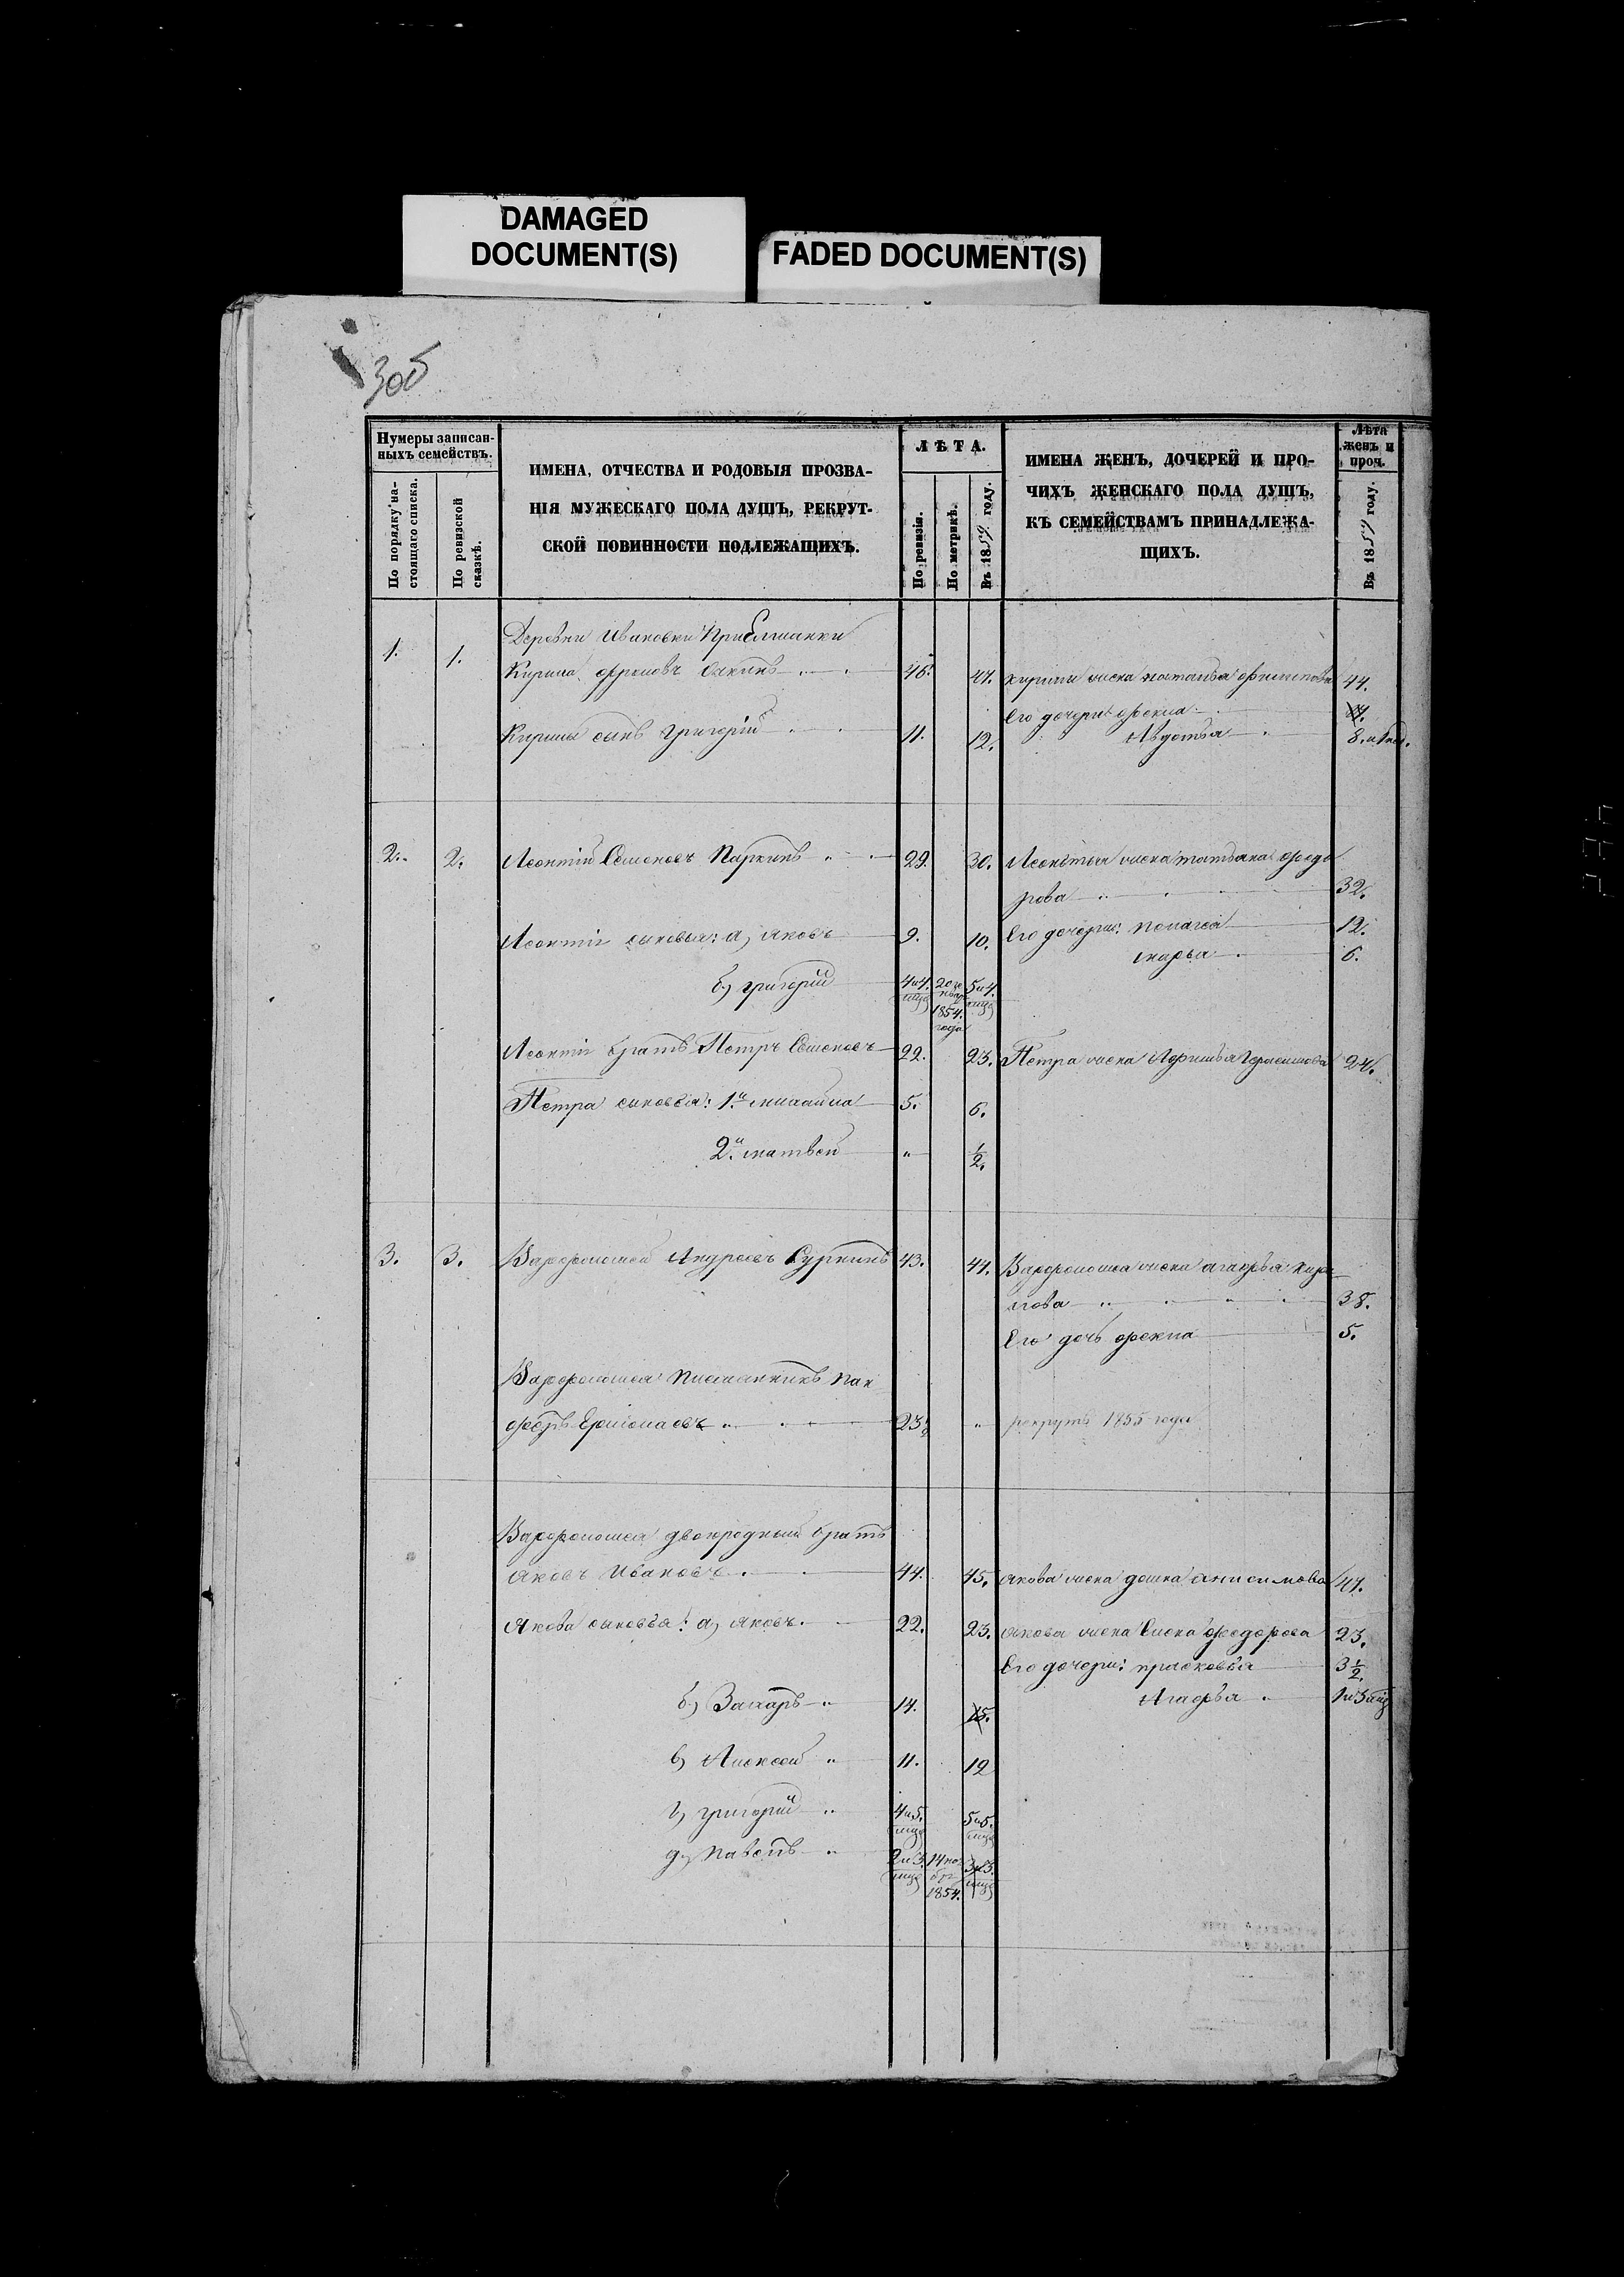 DAMAGED
DOCUMENT(S)
FADED DOCUMENT(S)
305
Нумеры записан-
ныхъ семействъ.
По порядку на-
стоящаго списка.
По ревизской
сказкѣ.
ИМЕНА, ОТЧЕСТВА И РОДОВЫЯ ПРОЗВА-
НІЯ МУЖЕСКАГО ПОЛА ДУШЪ, РЕКРУТ-
СКОЙ ПОВИННОСТИ ПОДЛЕЖАЩИХЪ.
ЛѢТА.
По ревизіи.
По метрикѣ.
Въ 1859 году.
ИМЕНА ЖЕНЪ, ДОЧЕРЕЙ И ПРО-
ЧИХЪ ЖЕНСКАГО ПОЛА ДУШЪ,
КЪ СЕМЕЙСТВАМЪ ПРИНАДЛЕЖА-
ЩИХЪ.
Лѣта
женъ и
проч.
Въ 1859 году.
Деревни Ивановки
1. 1. Кирила 46. 47. Кирилы жена Наталья Филипова 44.
Его дочери: Фекла
Кирилы сынъ Григорій 11. 12. Авдотья 8.
2. 2. Леонтій Семеновъ Паркинъ 29. 30. Леонтья жена Татьяна Федо
рова 32.
Леонтія сыновья: а, Яковъ 9. 10. Его дочери: Пелагея 12.
Марья 6.
б, Григорій 4 и 4. мця 5 и 4. мця
1854. года
Леонтія братъ Петръ Семеновъ 22. 23. Петра жена Афимья Герасимова 24.
Петра сыновья: 1й Михайла 5. 6.
2й Матвей " 1/2.
3. 3. Варфоломей Андреевъ Суркинъ 43. 44. Варфоломея жена Агафья Кири
лова 38.
Его дочь Фекла 5.
Варфоломея племянникъ Пан
феръ Ермолаевъ 23. " рекрутъ 1855 года
Варфоломея двоюродный братъ
Яковъ Ивановъ 44. 45. Якова жена Домна Анисимова 47.
Якова сыновья: а, Яковъ 22. 23. Якова жена Елена Федорова 23.
Его дочери: Прасковья 3 1/2.
б, Захаръ 14. 15. Агафья 1 и 3 мця
в, Алексей 11. 12
г, Григорій 4 и 5. мця 5 и 5. мця
д, Павелъ 2 и 3. мця 14 1854. 3 и 3. мця